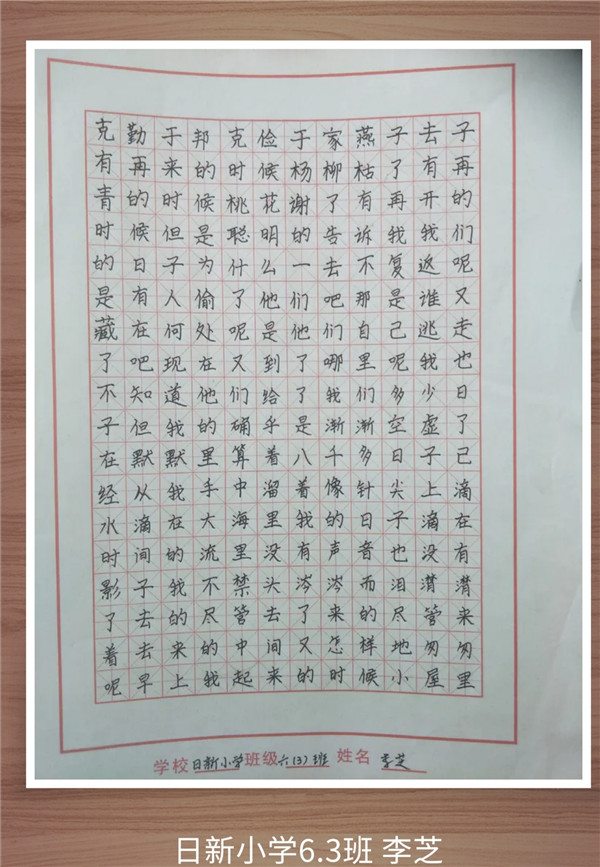 克勤于邦克俭于家燕子去子
有再来的时候杨柳枯了有再
青的时候桃花谢了有再开的
时候但是聪明的告诉我我们
的日子为什么一去不复返呢
是有人偷了他们吧那是谁又
藏在何处呢是他们自己逃走
了吧现在又到了哪里呢我也
不知道他们给了我们多少日
子但我的确乎是渐渐空虚了
在默默里算着八千多日子已
经从我手中溜着像针尖上滴
水滴在大海里我的日子滴在
时间的流里没有声音也没有
影子我不禁头涔涔而泪潸潸
了去的尽管去了来的尽管来
着去来的中间又怎样地匆匆
呢早上我起来的时候小屋里
学校日新小学班级六(3)班 姓名 李芝
日新小学6.3班 李芝